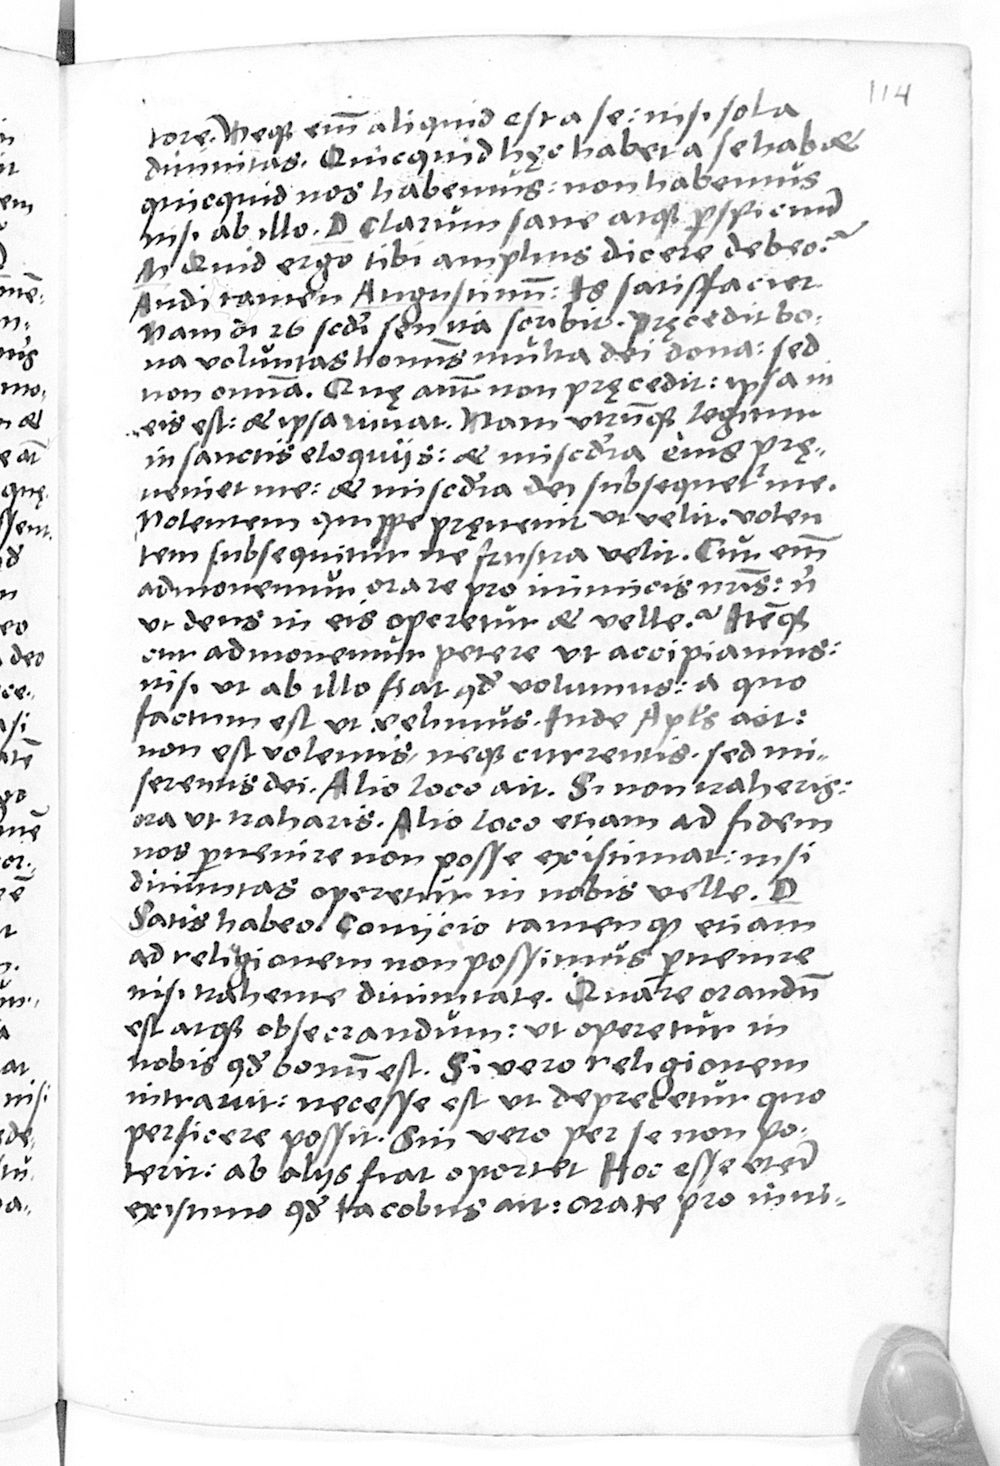 114
tore. Neqꝫ eni͞ aliquid est a se: nisi sola
diuinitas. Quicquid hęc habet a se habet
quicquid nos habemus: non habemus
nisi ab illo. D Clarum sane atqꝫ ꝑspicuu͞
M Quid ergo tibi amplius dicere debeo?
Audi tamen Augustinu͞: Is satisfaciet
Nam 26 scribit. Pręcedit bo-
na voluntas hominis multa dei dona: sed
non omn͞ia. Quę aut͞ non pręcedit: ipsa in
eis est: et ipsa iuuat. Nam vtru͞qꝫ legitur
in sanctis eloquijs: et mis͞cdia eius prę-
ueniet me: et mis͞cdia dei subsequet͛ me.
Nolentem quippe pręuenit vt velit. volen
tem subsequitur ne frustra velit. Cur eni͞
admonemur orare pro inimicis nr͞is: n͛
vt deus in eis operetur et velle? Ite͞qꝫ
cur admonemur petere vt accipiamus:
nisi vt ab illo fiat qd͛ volumus: a quo
factum est vt velimus. Inde Apl͛s ait:
non est volentis, neqꝫ currentis. sed mi-
serentis dei. Alio loco ait. Si non traheris:
ora vt traharis. Alio loco etiam ad fidem
nos ꝑuenire non posse existimat: nisi
diuinitas operetur in nobis velle. D
Satis habeo. Coniicio tamen qꝫ etiam
ad religionem non possimus ꝑuenire
nisi trahente diuinitate. Quare orandu͞
est atqꝫ obsecrandum: vt operetur in
nobis qd͛ bonu͞ est. Si vero religionem
intrauit: necesse est vt deprecetur quo
perficere possit. Sin vero per se non po-
terit: ab alijs fiat oportet Hoc esse
existimo qd͛ Iacobus ait: orate pro inui-